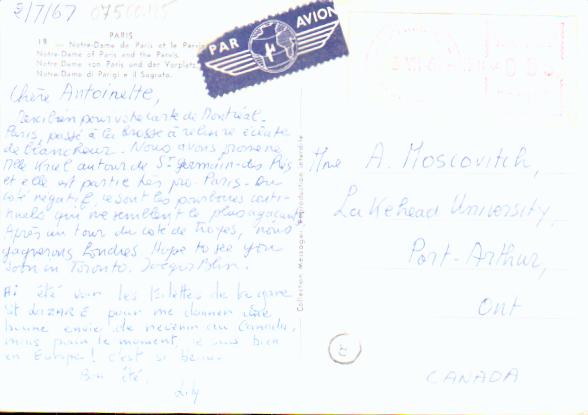 2/7/67
PARIS
19 — Notre-Dame de Paris et le Parvis
Notre-Dame of Paris and the Parvis
Notre-Dame von Paris und der Vorplatz
Notre-Dame di Parigi e il Sagrato
PAR AVION
Chère Antoinette,
pour votre carte de Montréal.
Paris, passé à la brosse à reluire éclate
de blancheur. Nous avons promené
Mlle autour de St Germain-des Prés
et elle est partie très pro-Paris. Du
côté négatif, ce sont les pourboires conti-
nuels qui me semblent le plus agaçant
Après un tour du côté de Troyes, nous
gagnerons Londres. Hope to see you
soon in Toronto.
Ai été voir les toilettes de la gare
St LAZARE pour me donner une
bonne envie de revenir au Canada,
mais pour le moment, je suis bien
en Europe! c'est si beau.
Bon été.
Lily
Collection Messages. Reproduction interdite
Mme A. Moscovitch,
Lakehead University,
Port-Arthur,
Ont
CANADA